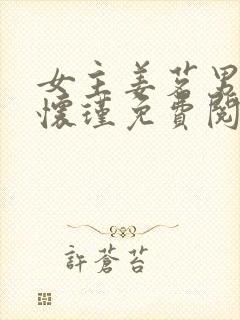 女主姜茗男
懷瑾免費閱
許蒼苔